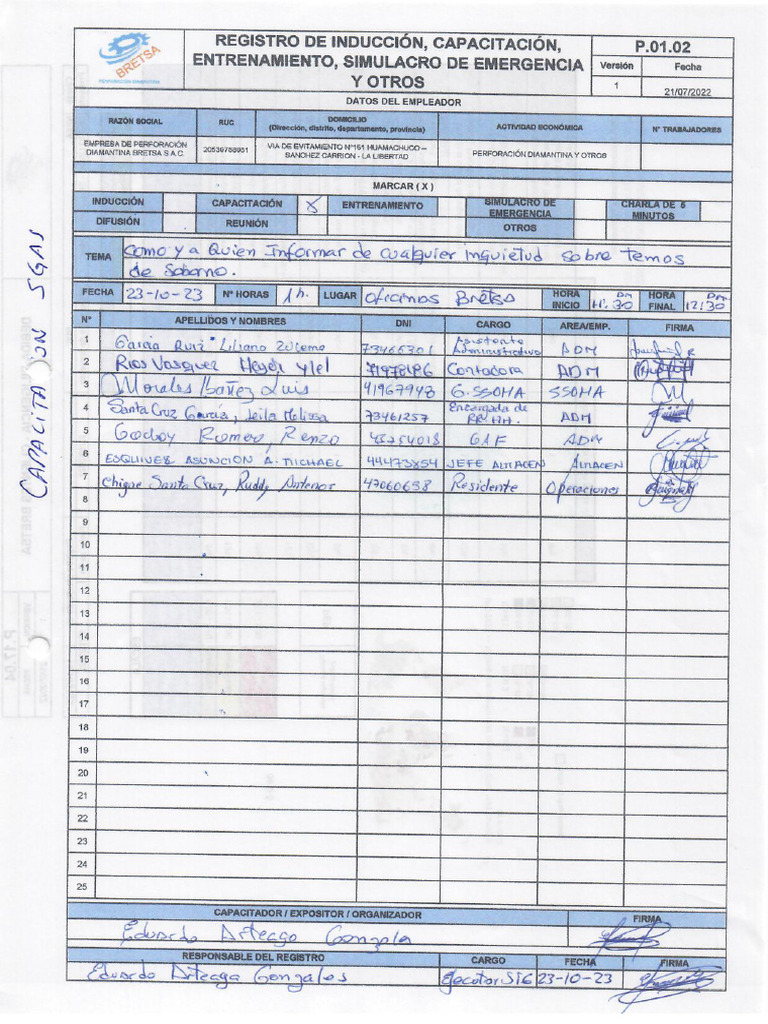 BRETSA
PERFORACIÓN DIAMANTINA
REGISTRO DE INDUCCIÓN, CAPACITACIÓN,
ENTRENAMIENTO, SIMULACRO DE EMERGENCIA
Y OTROS
P.01.02
Versión Fecha
1 21/07/2022
DATOS DEL EMPLEADOR
RAZÓN SOCIAL RUC DOMICILIO (Dirección, distrito, departamento, provincia) ACTIVIDAD ECONÓMICA N° TRABAJADORES
EMPRESA DE PERFORACIÓN DIAMANTINA BRETSA S.A.C. 20539788951 VIA DE EVITAMIENTO N°161 HUAMACHUCO – SANCHEZ CARRION - LA LIBERTAD PERFORACIÓN DIAMANTINA Y OTROS
MARCAR ( X )
INDUCCIÓN CAPACITACIÓN X ENTRENAMIENTO SIMULACRO DE EMERGENCIA CHARLA DE 5 MINUTOS
DIFUSIÓN REUNIÓN OTROS
TEMA Como y a Quien Informar de cualquier inquietud sobre temas
de Soborno.
FECHA 23-10-23 N° HORAS 1h. LUGAR Oficinas Bretsa HORA INICIO 11:30 HORA FINAL 12:30
N° APELLIDOS Y NOMBRES DNI CARGO AREA/EMP. FIRMA
1 Garcia Ruiz Liliana Zulema 73465301 Asistente Administrativo ADM
2 Rios Vasquez Heydi 71978196 Contadora ADM
3 Morales Ibañez Luis 41967948 G. SSOMA SSOMA
4 Santa Cruz Garcia, Leila Melissa 73461257 Encargada de RR.HH. ADM
5 Godoy Romero, Renzo 43754018 GAF ADM
6 ESQUIVEL ASUNCION A. MICHAEL 44473854 JEFE ALMACEN ALMACEN
7 Chigne Santa Cruz, Ruddy Antenor 47060698 Residente Operaciones
8
9
10
11
12
13
14
15
16
17
18
19
20
21
22
23
24
25
CAPACITADOR / EXPOSITOR / ORGANIZADOR FIRMA
Eduardo Arteaga Gonzales
RESPONSABLE DEL REGISTRO CARGO FECHA FIRMA
Eduardo Arteaga Gonzales Ejecutor SIG 23-10-23
CAPACITACION SGAS